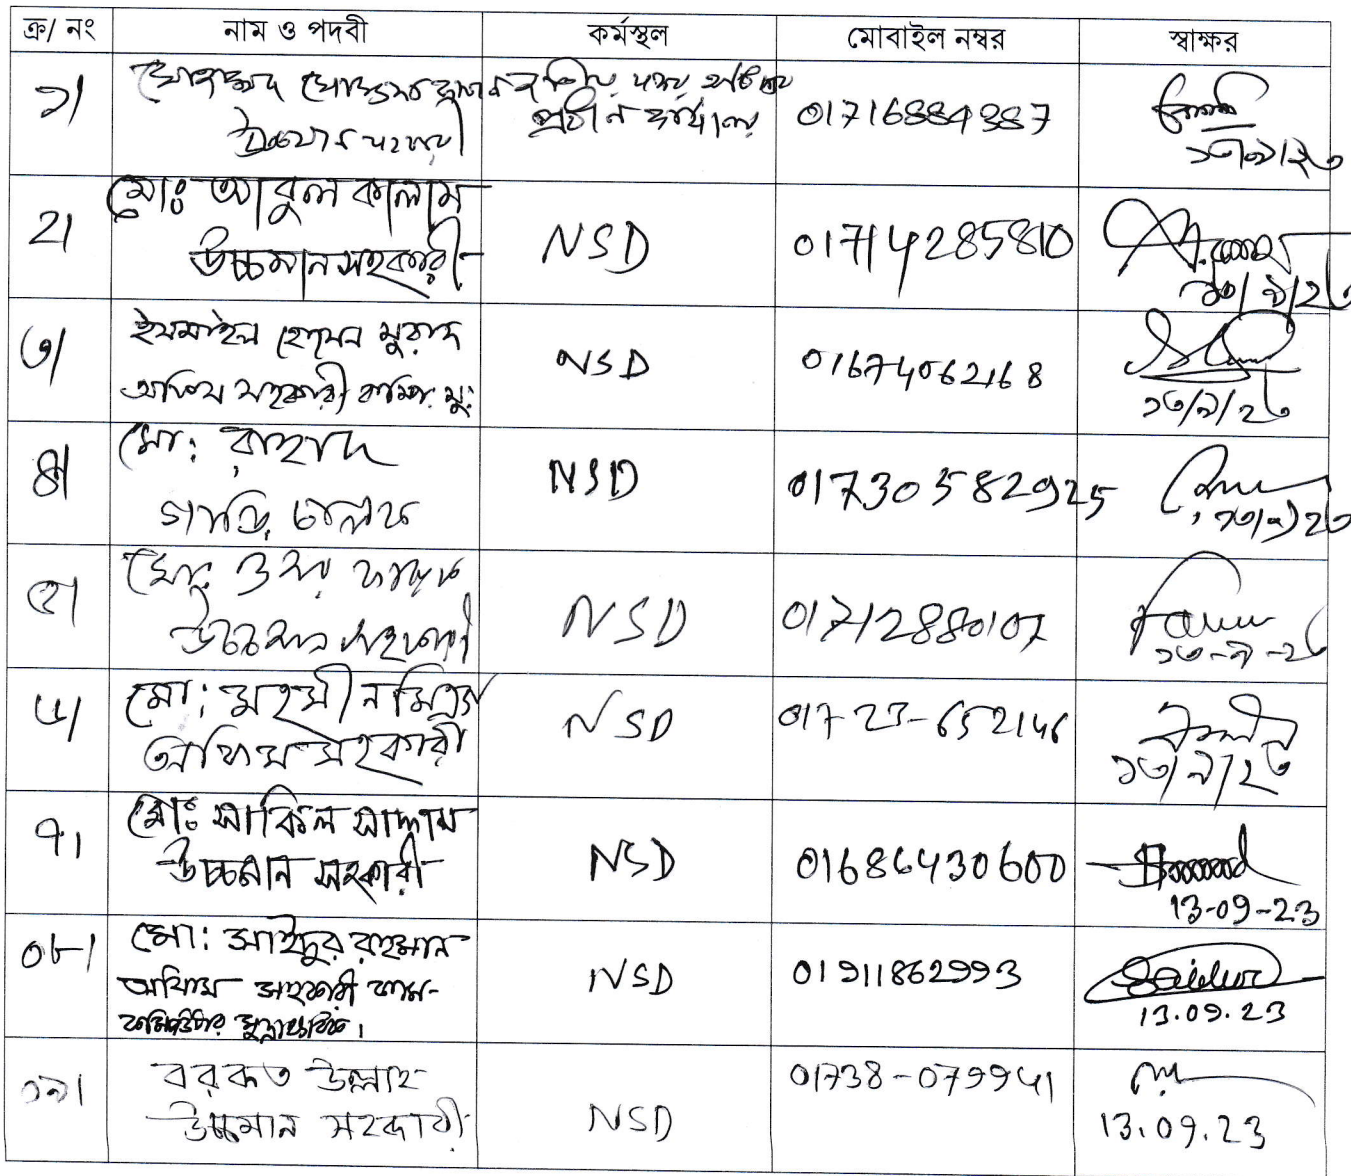 ক্র/ নং নাম ও পদবী কর্মস্থল মোবাইল নম্বর স্বাক্ষর
১। মোহাম্মদ
উচ্চমান সহকারী প্রধান কার্যালয় 01716884387
১৩/৯/২৩
২। মোঃ আবুল কালাম
উচ্চমান সহকারী NSD 01714285810
১৩/৯/২৩
৩। ইসমাইল হোসেন মুরাদ
অফিস সহকারী কাম্পি. মু: NSD 01674062168
১৩/৯/২৩
৪। মো: রাহাদ
গাড়ি চালক NSD 01730582925
১৩/৯/২৩
৫। মোঃ ওমর ফারুক
উচ্চমান সহকারী NSD 01712880107
১৩-৯-২৩
৬। মো: মহসীন মিঞা
অফিস সহকারী NSD 01723-652146
১৩/৯/২৩
৭। মোঃ সাকিল সাদ্দাম
উচ্চমান সহকারী NSD 01686430600
13-09-23
০৮। মো: সাইদুর রহমান
অফিস সহকারী কাম-
কম্পিউটার মুদ্রাক্ষরিক। NSD 01911862993
Saidur
13.09.23
০৯। বরকত উল্লাহ
উচ্চমান সহকারী NSD 01738-079941
13.09.23